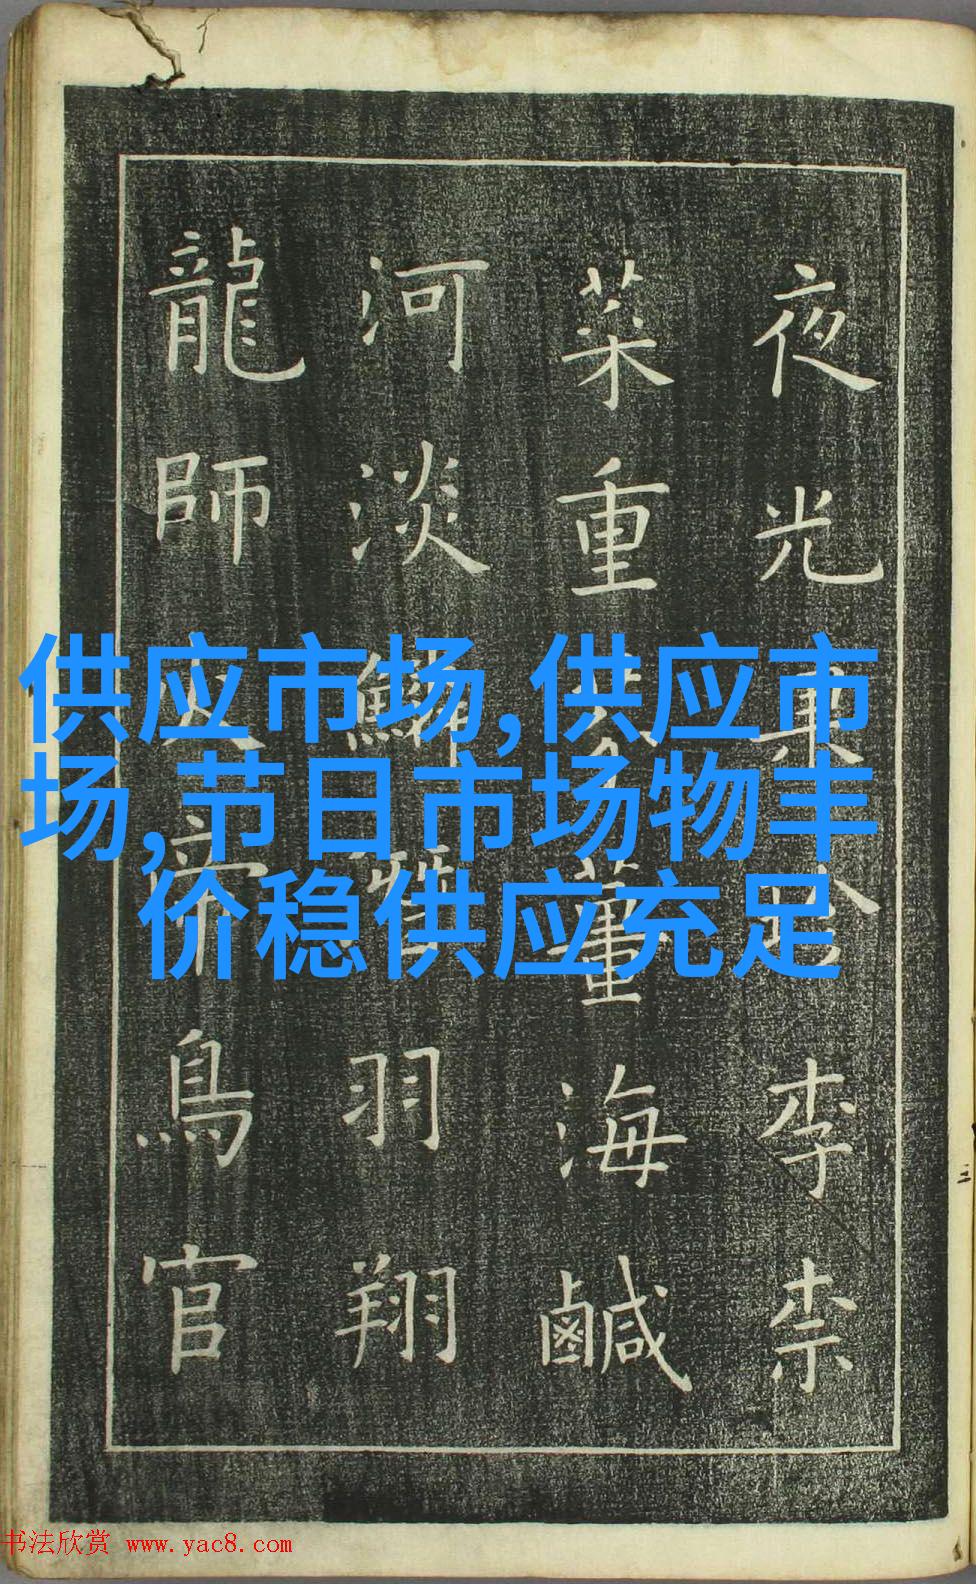 夜光果珍李柰
菜重芥薑海鹹
河淡鱗潛羽翔
龍師火帝鳥官
供应市场,供应市
场,节日市场物丰
价稳供应充足
书法欣赏 www.yac8.com